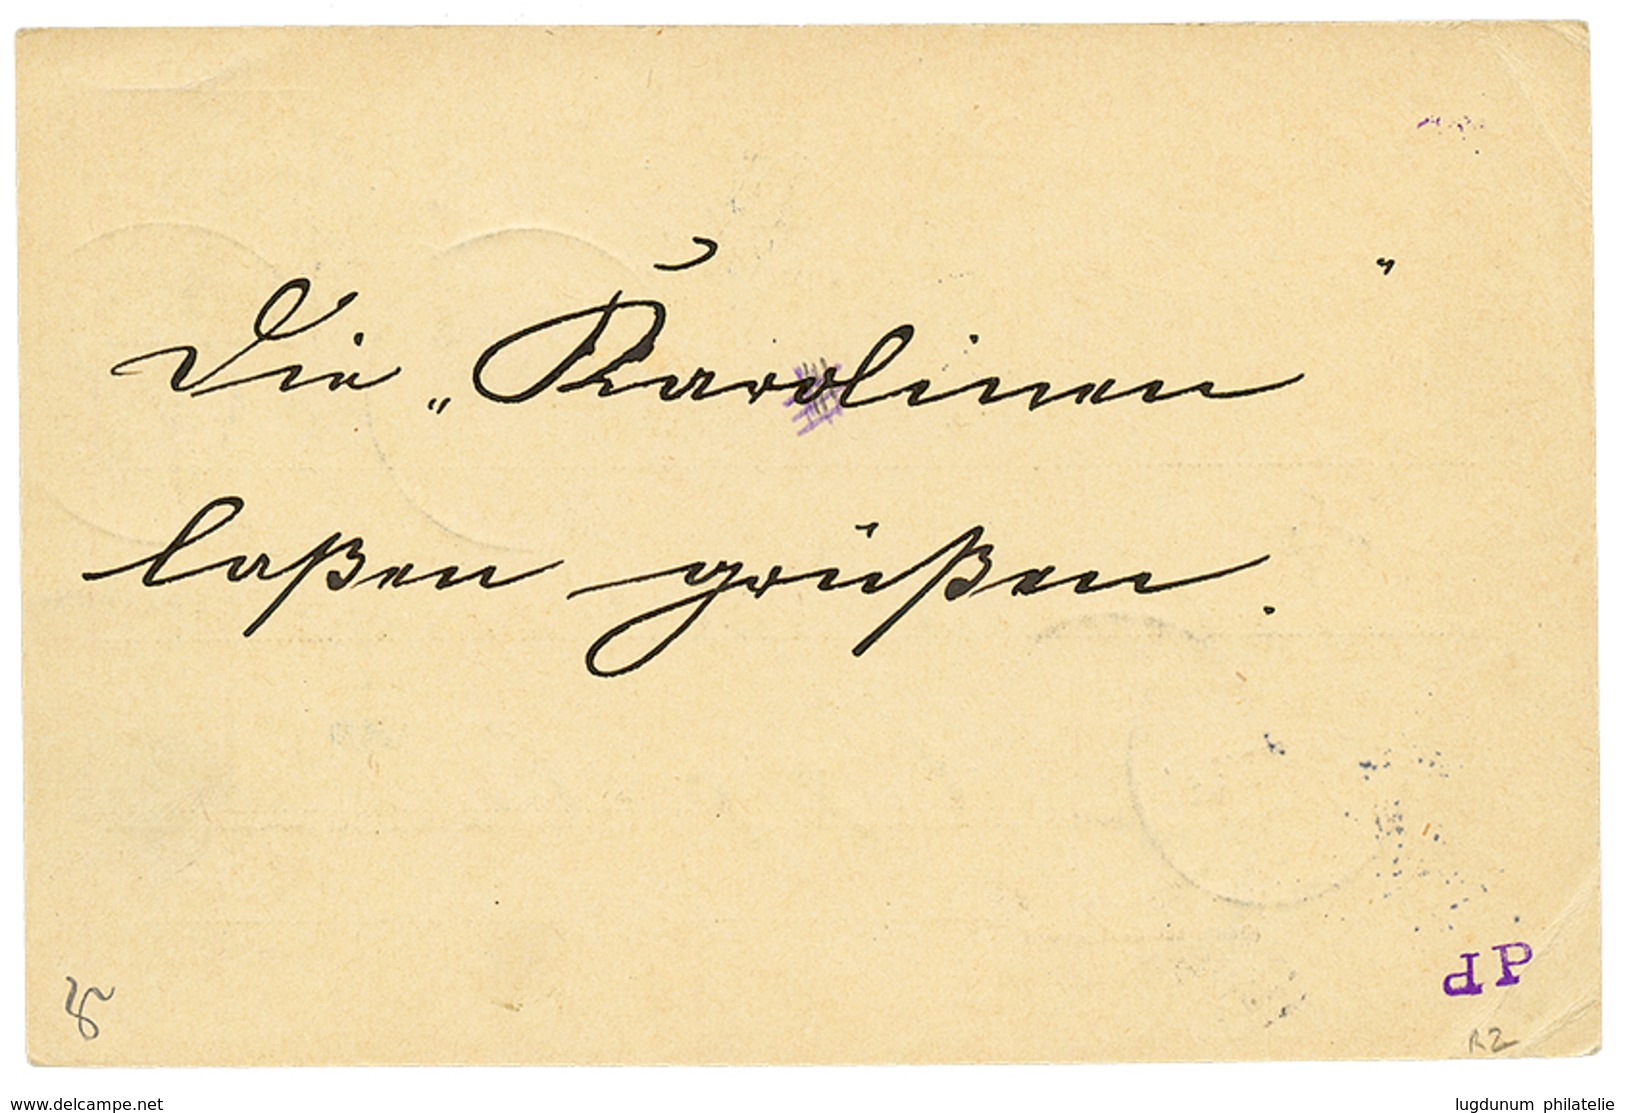 Die „Karolinen"
laßen grüßen.
dP
R2
www.delcampe.net
lugdunum philatelie